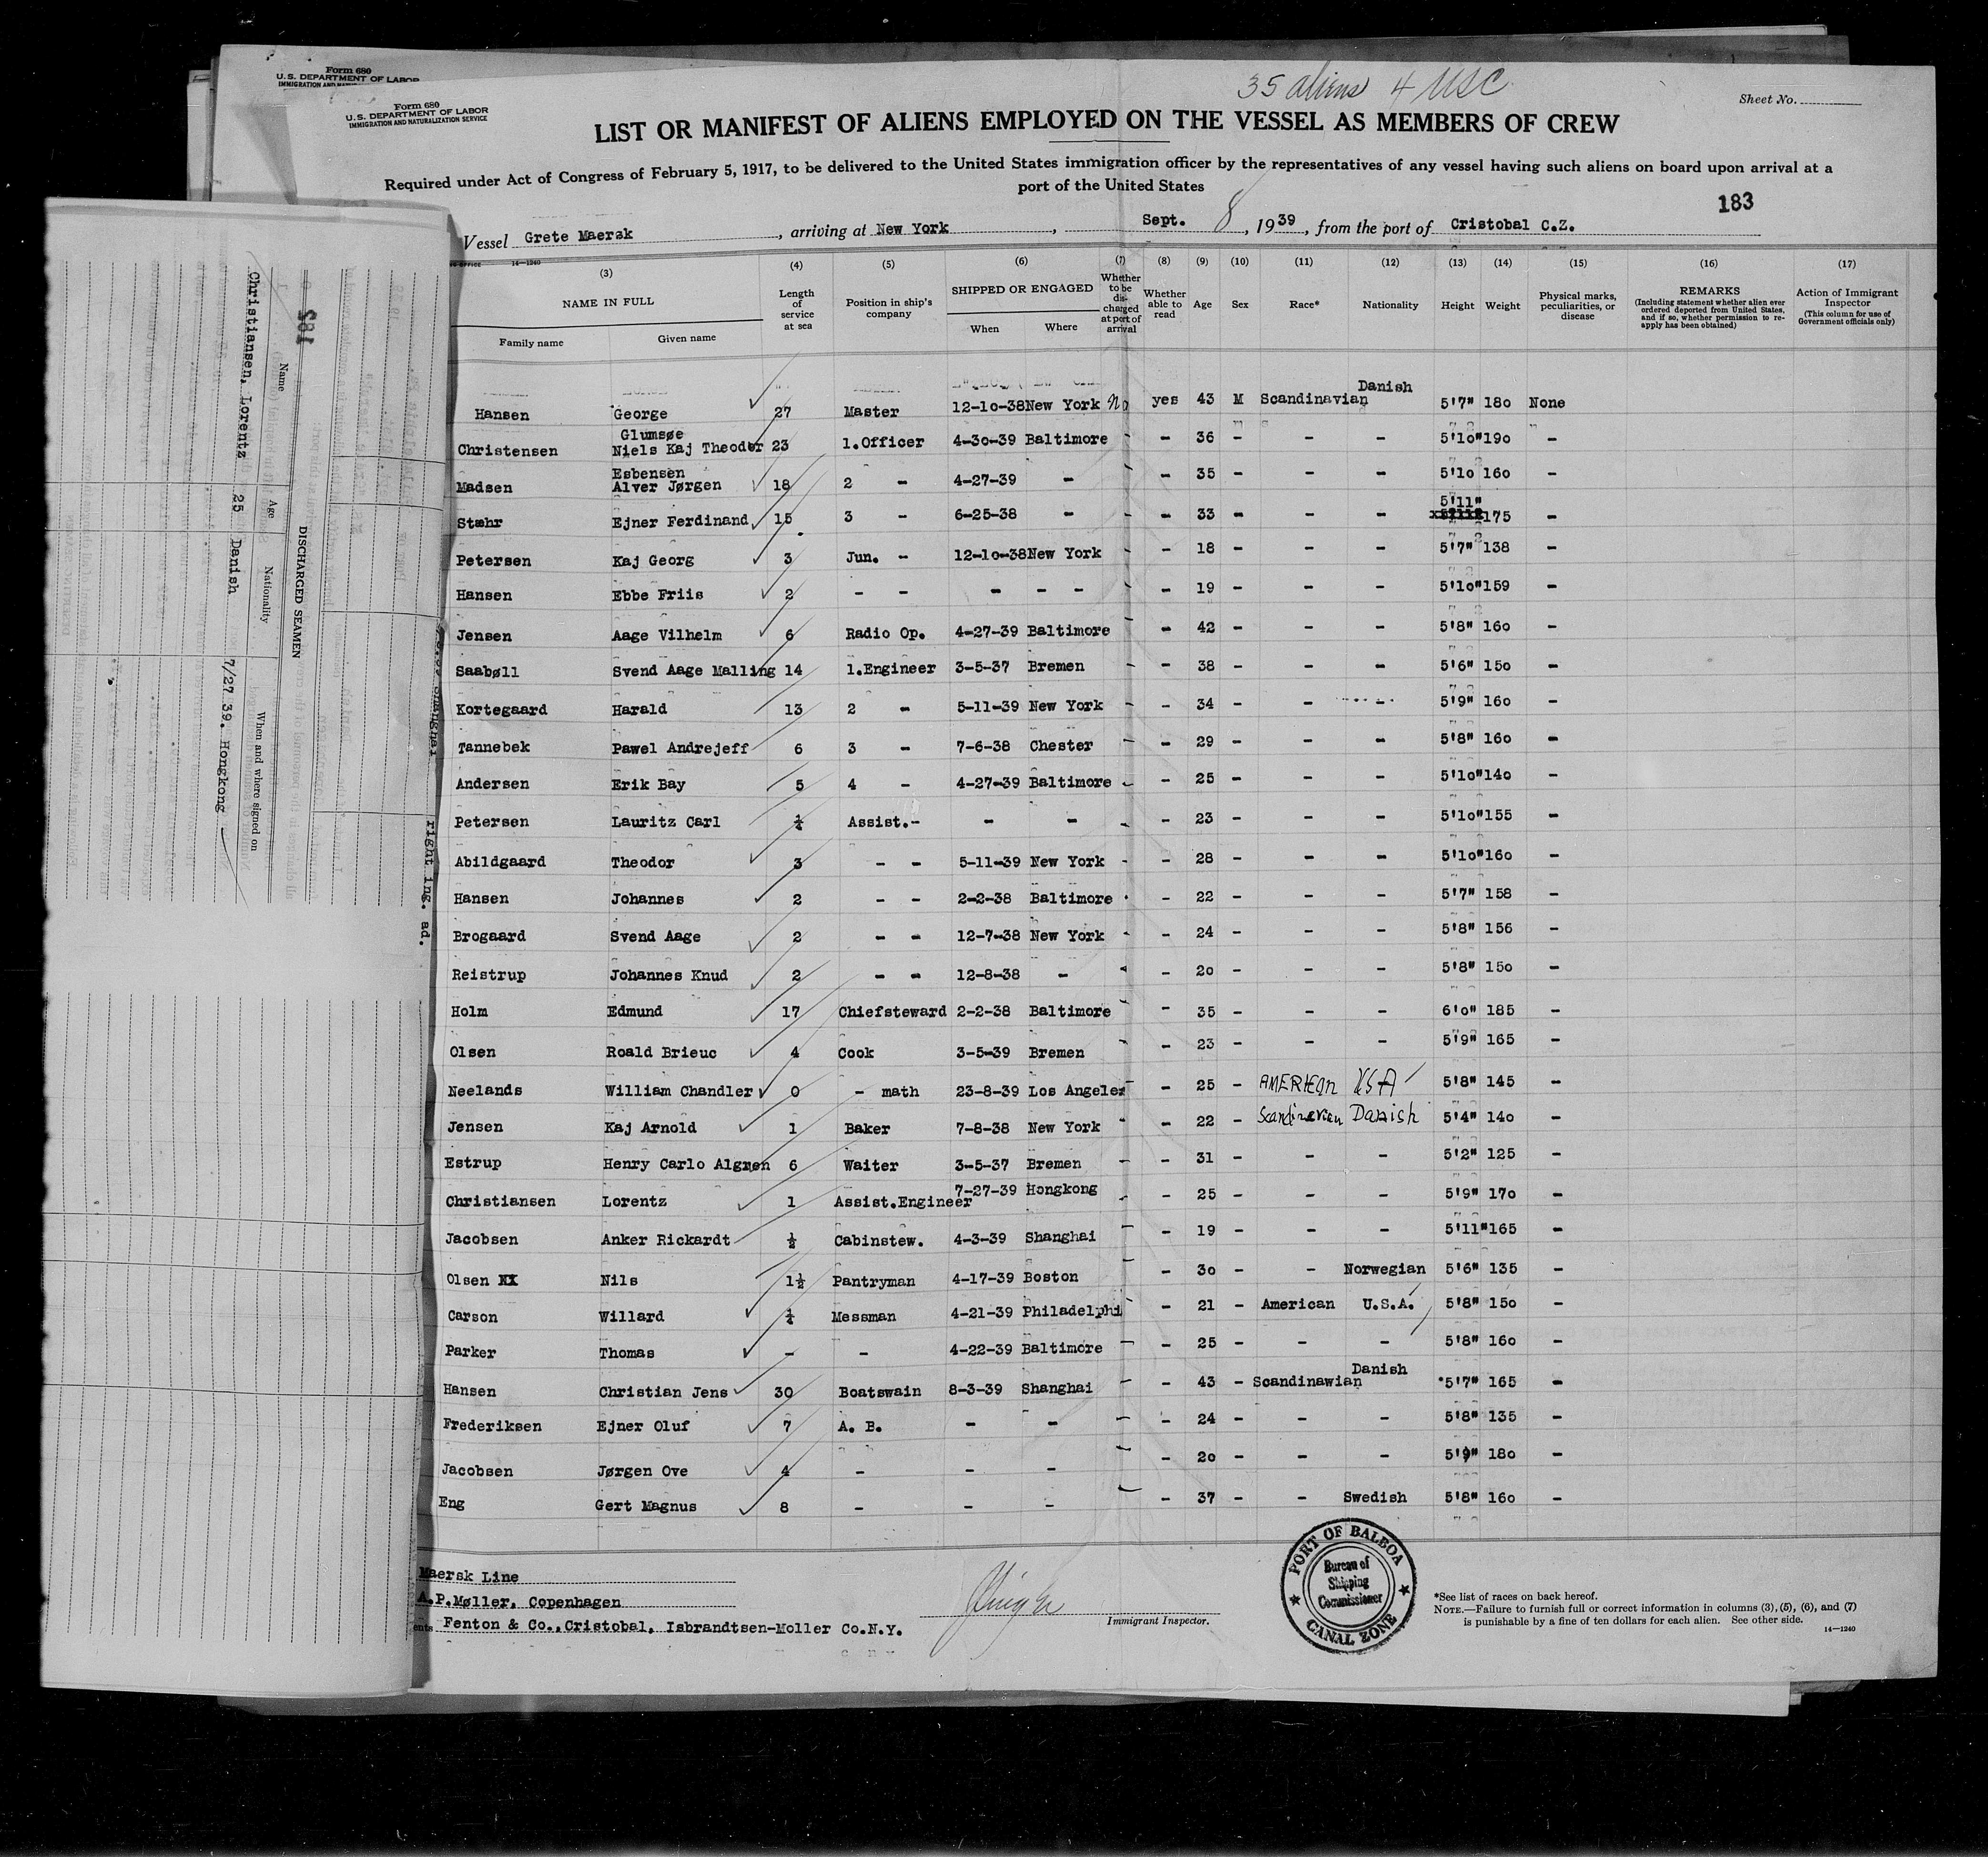 Form 680
U.S. DEPARTMENT OF LABOR
Form 680
U.S. DEPARTMENT OF LABOR
IMMIGRATION AND NATURALIZATION SERVICE
35 aliens 4 USC
Sheet No.
LIST OR MANIFEST OF ALIENS EMPLOYED ON THE VESSEL AS MEMBERS OF CREW
Required under Act of Congress of February 5, 1917, to be delivered to the United States immigration officer by the representatives of any vessel having such aliens on board upon arrival at a
port of the United States
183
Vessel Grete Maersk, arriving at New York, Sept. 8, 1939, from the port of Cristobal C.Z.
14—1240
(3) (4) (5) (6) (7) (8) (9) (10) (11) (12) (13) (14) (15) (16) (17)
NAME IN FULL
Family name Given name
Length of service at sea
Position in ship's company
SHIPPED OR ENGAGED
When Where
Whether to be discharged at port of arrival
Whether able to read
Age
Sex
Race*
Nationality
Height
Weight
Physical marks, peculiarities, or disease
REMARKS
(Including statement whether alien ever ordered deported from United States, and if so, whether permission to reapply has been obtained)
Action of Immigrant Inspector
(This column for use of Government officials only)
Hansen George 27 Master 12-10-38 New York No yes 43 M Scandinavian Danish 5'7" 180 None
Christensen Glumsøe Niels Kaj Theodor 23 1.Officer 4-30-39 Baltimore - - 36 - - - 5'10" 190 -
Madsen Esbensen Alver Jørgen 18 2 - 4-27-39 - - - 35 - - - 5'10 160 -
Stæhr Ejner Ferdinand 15 3 - 6-25-38 - - - 33 - - - 5'11" 175 -
Petersen Kaj Georg 3 Jun. - 12-10-38 New York - - 18 - - - 5'7" 138 -
Hansen Ebbe Friis 2 - - - - - - - 19 - - - 5'10" 159 -
Jensen Aage Vilhelm 6 Radio Op. 4-27-39 Baltimore - - 42 - - - 5'8" 160 -
Saabøll Svend Aage Malling 14 1.Engineer 3-5-37 Bremen - - 38 - - - 5'6" 150 -
Kortegaard Harald 13 2 - 5-11-39 New York - - 34 - - - 5'9" 160 -
Tannebek Pawel Andrejeff 6 3 - 7-6-38 Chester - - 29 - - - 5'8" 160 -
Andersen Erik Bay 5 4 - 4-27-39 Baltimore - - 25 - - - 5'10" 140 -
Petersen Lauritz Carl ¼ Assist.- - - - - 23 - - - 5'10" 155 -
Abildgaard Theodor 3 - - 5-11-39 New York - - 28 - - - 5'10" 160 -
Hansen Johannes 2 - - 2-2-38 Baltimore - - 22 - - - 5'7" 158 -
Brogaard Svend Aage 2 - - 12-7-38 New York - - 24 - - - 5'8" 156 -
Reistrup Johannes Knud 2 - - 12-8-38 - - - 20 - - - 5'8" 150 -
Holm Edmund 17 Chiefsteward 2-2-38 Baltimore - - 35 - - - 6'0" 185 -
Olsen Roald Brieuc 4 Cook 3-5-39 Bremen - - 23 - - - 5'9" 165 -
Neelands William Chandler 0 - math 23-8-39 Los Angeles - - 25 - AMERICAN USA 5'8" 145 -
Jensen Kaj Arnold 1 Baker 7-8-38 New York - - 22 - Scandinavian Danish 5'4" 140 -
Estrup Henry Carlo Algren 6 Waiter 3-5-37 Bremen - - 31 - - - 5'2" 125 -
Christiansen Lorentz 1 Assist.Engineer 7-27-39 Hongkong - - 25 - - - 5'9" 170 -
Jacobsen Anker Rickardt ½ Cabinstew. 4-3-39 Shanghai - - 19 - - - 5'11" 165 -
Olsen XX Nils 1½ Pantryman 4-17-39 Boston - - 30 - - Norwegian 5'6" 135 -
Carson Willard ¼ Messman 4-21-39 Philadelphi - - 21 - American U.S.A. 5'8" 150 -
Parker Thomas - - 4-22-39 Baltimore - - 25 - - - 5'8" 160 -
Hansen Christian Jens 30 Boatswain 8-3-39 Shanghai - - 43 - Scandinawian Danish 5'7" 165 -
Frederiksen Ejner Oluf 7 A. B. - - - - 24 - - - 5'8" 135 -
Jacobsen Jørgen Ove 4 - - - - - 20 - - - 5'9" 180 -
Eng Gert Magnus 8 - - - - - 37 - - Swedish 5'8" 160 -
Maersk Line
A.P.Møller, Copenhagen
ents Fenton & Co.,Cristobal, Isbrandtsen-Moller Co.N.Y.
Immigrant Inspector.
PORT OF BALBOA
Bureau of
Shipping
Commissioner
CANAL ZONE
*See list of races on back hereof.
NOTE.—Failure to furnish full or correct information in columns (3), (5), (6), and (7)
is punishable by a fine of ten dollars for each alien. See other side.
14—1240
182
DISCHARGED SEAMEN
Name Age Nationality When and where signed on
Christiansen, Lorentz 25 Danish 7/27 39. Hongkong
Shanghai
right ing. ad.